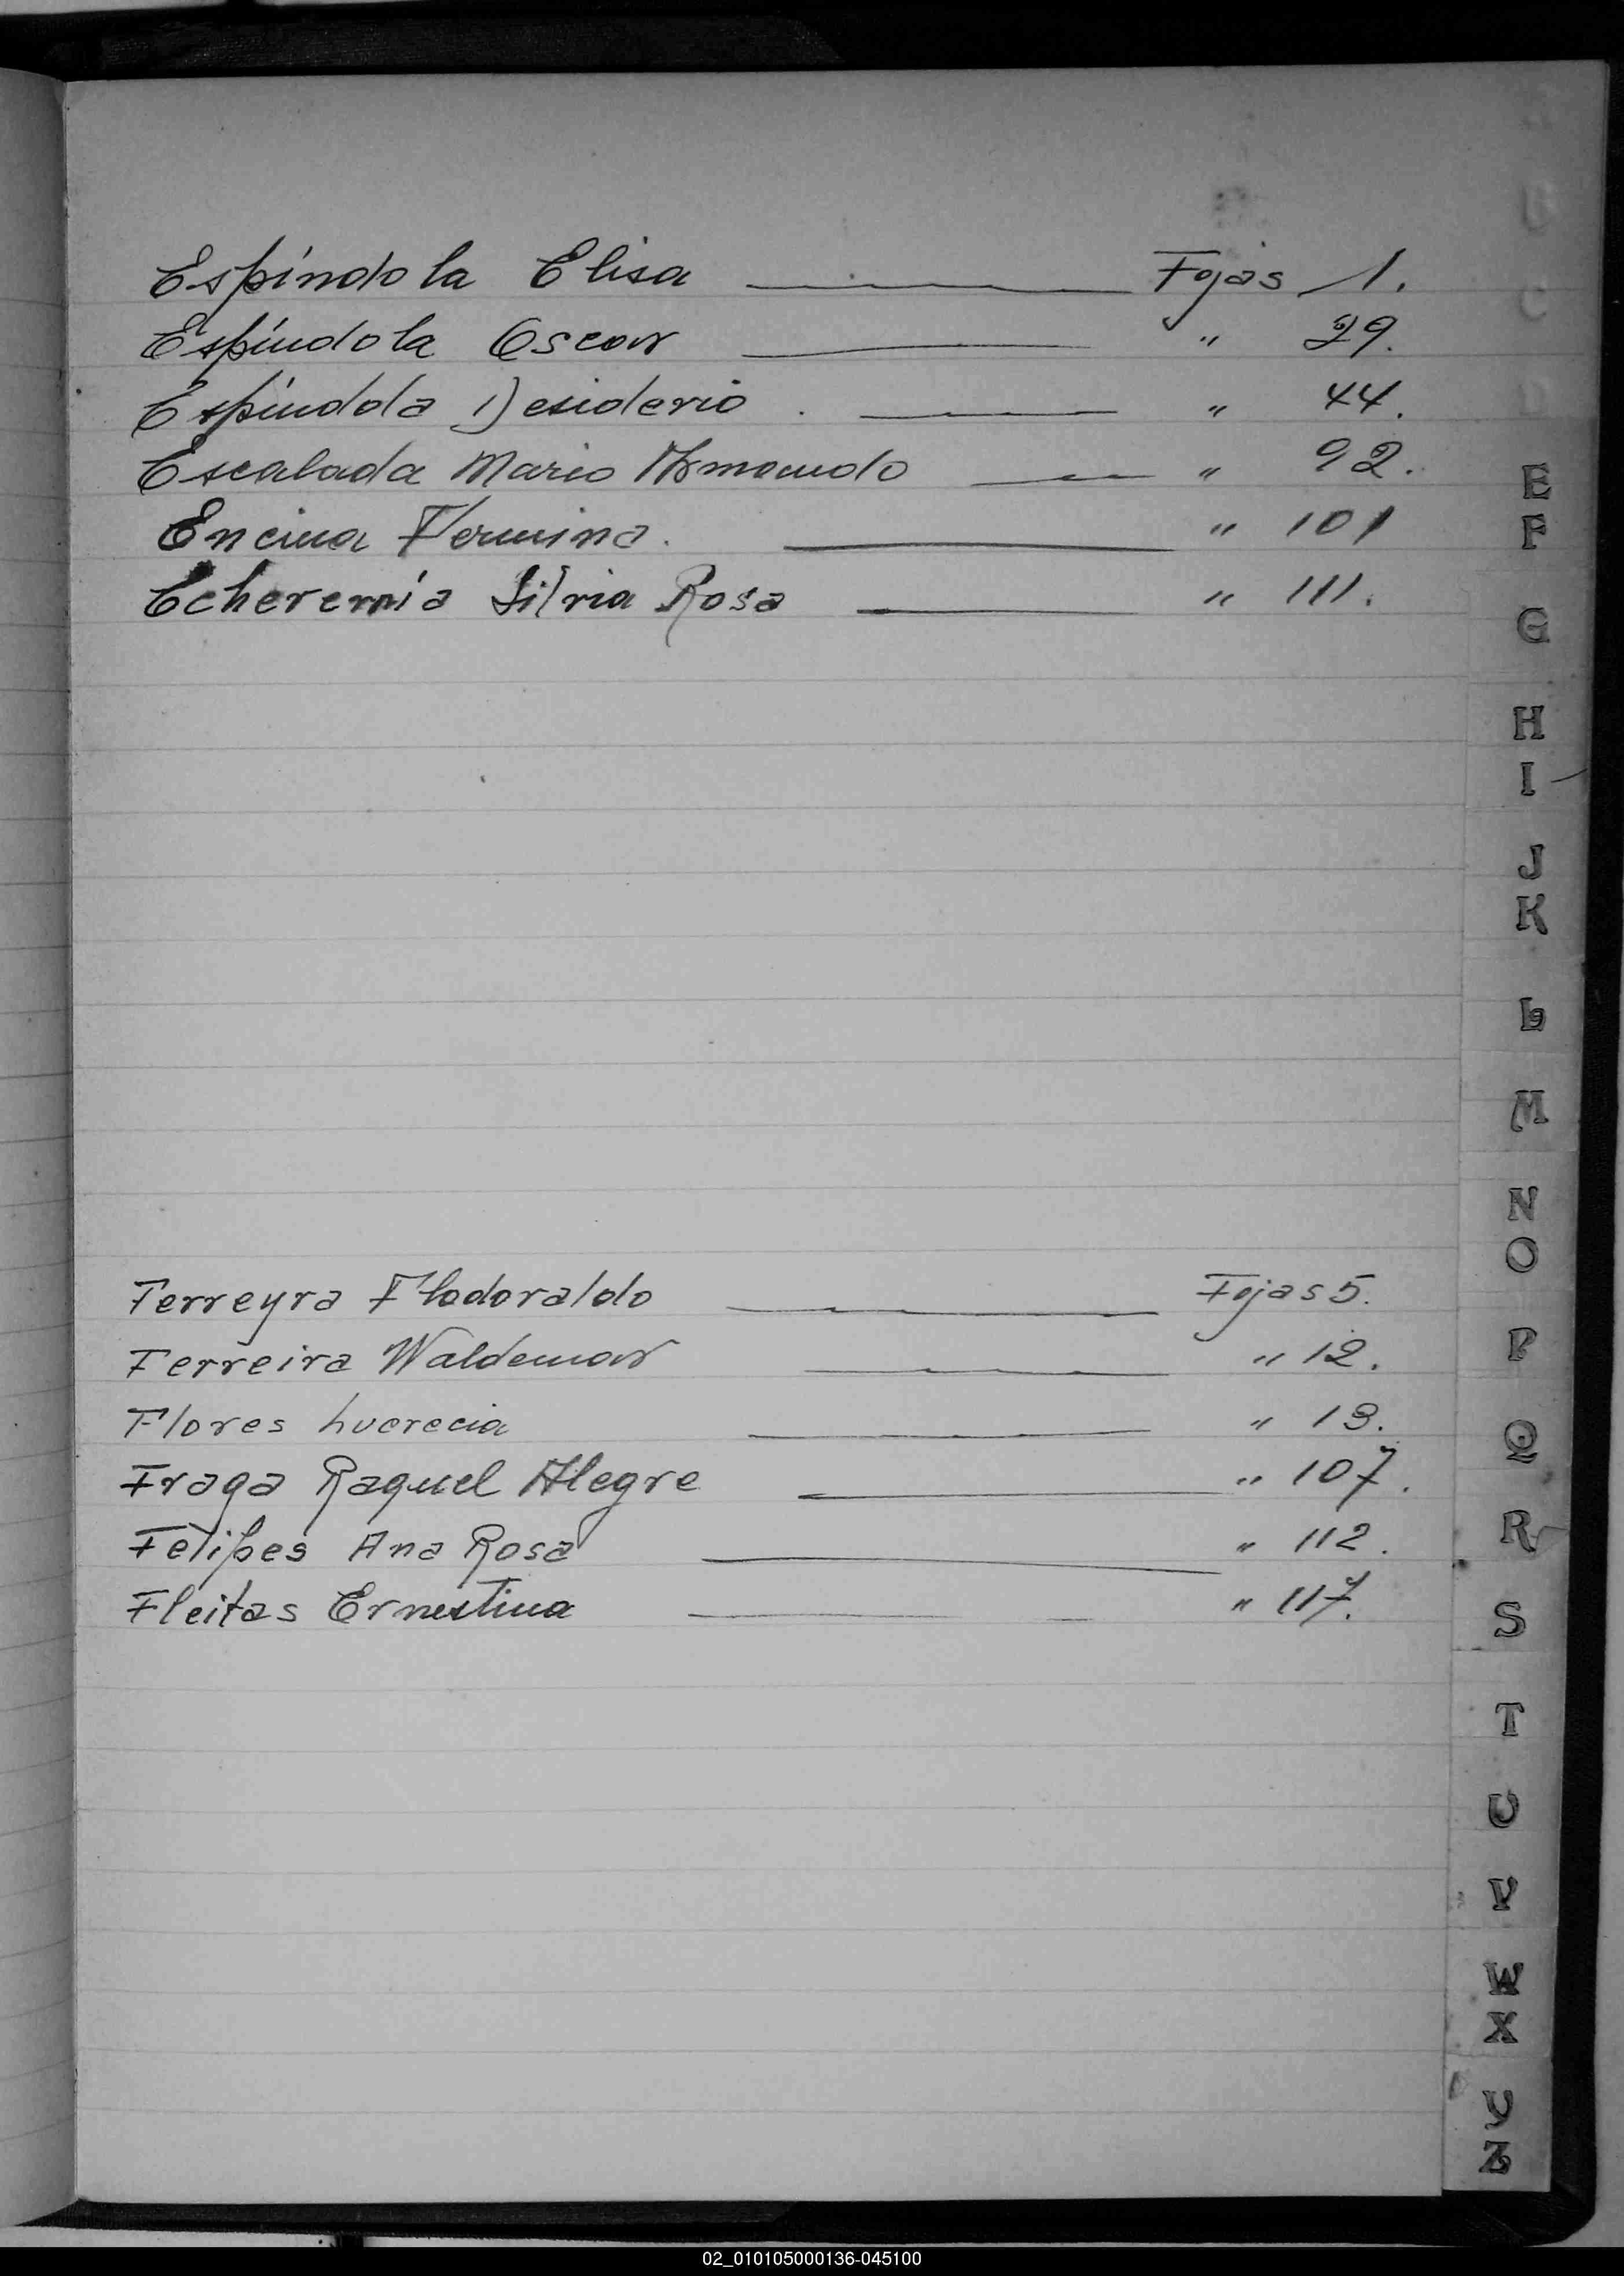 Espíndola Elisa Fojas 1.
Espíndola Oscar " 29.
Espíndola Desiderio . " 44.
Escalada Mario Armando " 92.
Encina Fermina. " 101
Echeverría Silvia Rosa " 111.
Ferreyra Flodoraldo Fojas 5.
Ferreira Waldemar " 12.
Flores Lucrecia " 13.
Fraga Raquel Alegre " 107.
Felipes Ana Rosa " 112.
Fleitas Ernestina " 117.
E
F
G
H
I
J
K
L
M
N
O
P
Q
R
S
T
U
V
W
X
Y
Z
02_010105000136-045100